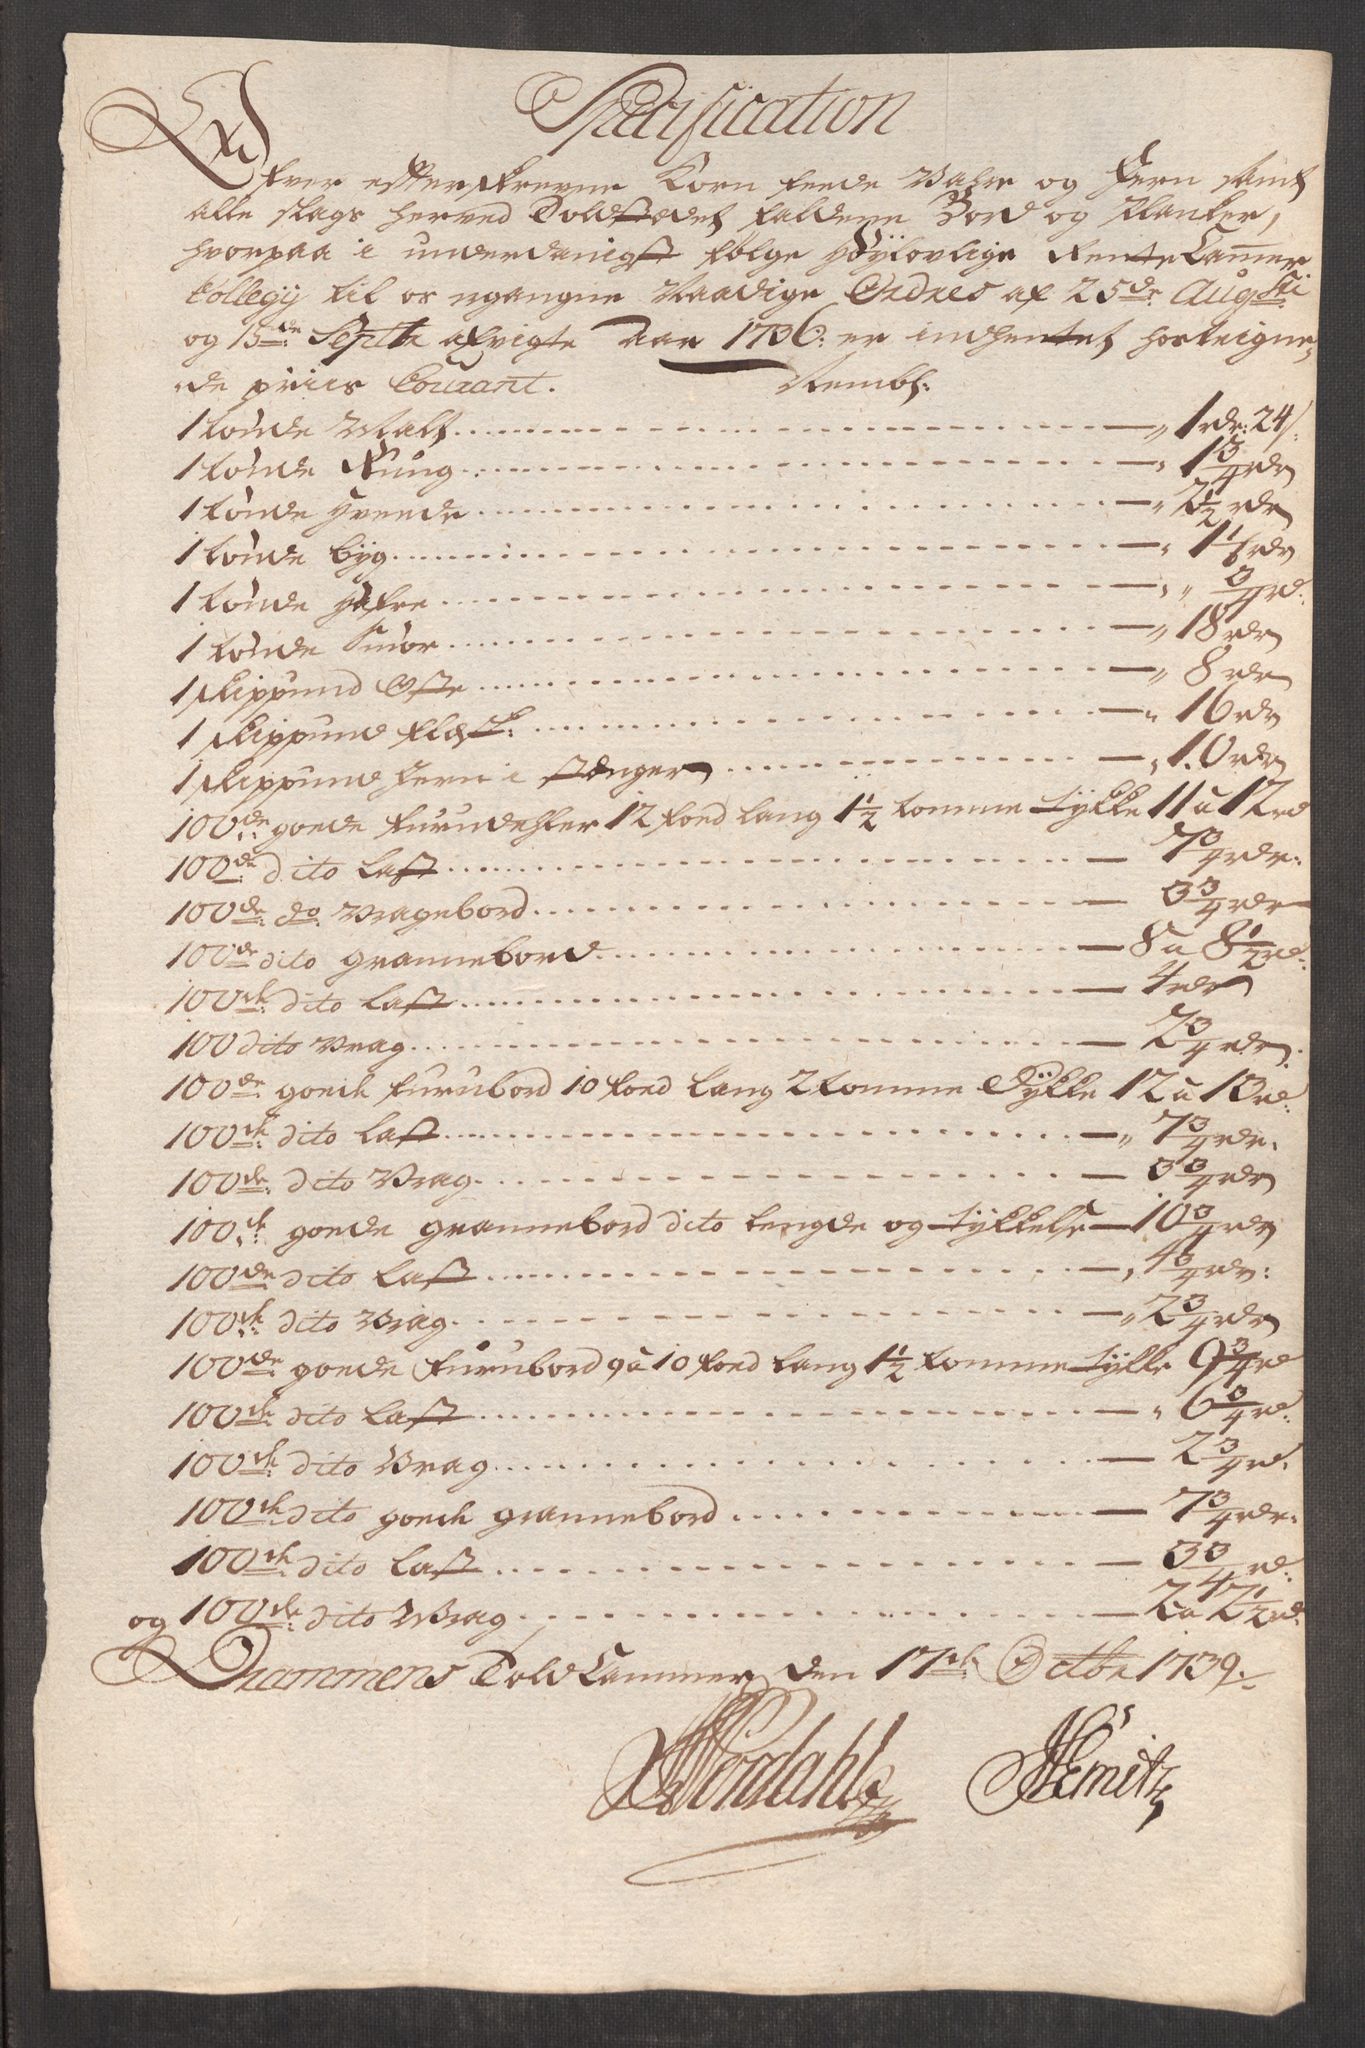 Specification
Over efterskrevne Korn feede Vahre og Jern samt
alle slags herved Toldstædet faldene Bord og Planker,
hvorpaa i underdanigst følge Høylovlige Rente Cammer
Collegij til os ergangne Naadige Ordres af 25de Augusti
og 15de Septbr afvigte Aar 1736: er indhentet hosteigne,
,de priis Courant. Nembl:
1 tønde Malt . . . „ 1 rdr: 24 s:
1 tønde Rung . . . „ 1 3/4 rdr
1 tønde Hvede . . . „ 2 1/2 rdr
1 tønde byg . . . „ 1 1/8 rdr
1 tønde Hafre . . . „ „ 3/4 rd:
1 tønde Smør . . . „ 18 rdr
1 Skippund Oste . . . „ 8 rdr
1 Skippund flæsk: . . . „ 16 rdr
1 Skippund Jern i stænger . . . „ 10 rdr
100de goede furudehler 12 foed lang 1 1/2 tomme tykke 11 a 12 rd
100de dito last . . . 7 3/4 rdr:
100de do Vragebord . . . 3 3/4 rdr
100de dito grannebord . . . 8 a 8 1/2 rd:
100de dito last . . . 4 rdr
100 dito Vrag . . . 2 3/4 rdr.
100de goede furubord 10 foed lang 2 tomme Tykke 12 a 13 rd:
100de dito last . . . „ 7 3/4 rdr.
100de dito Vrag . . . 3 3/4 rdr
100de goede grannebord dito lengde og tykkelse 10 3/4 rdr
100de dito last . . . „ 4 3/4 rdr:
100de dito Vrag . . . „ 2 3/4 rdr
100de goede furubord 9 a 10 foed lang 1 1/2 tomme tykke 9 3/4 rd
100de dito last . . . „ 6 3/4 rd:
100de dito Vrag . . . 2 3/4 rd.
100de dito goede grannebord . . . 7 3/4 rdr.
100de dito last . . . 3 3/4 rd:
og 100de dito Vrag . . . 2 a 2 1/2 rd:
Drammens Told Cammer den 17de Octbr 1739.
Nordahl Nemitz